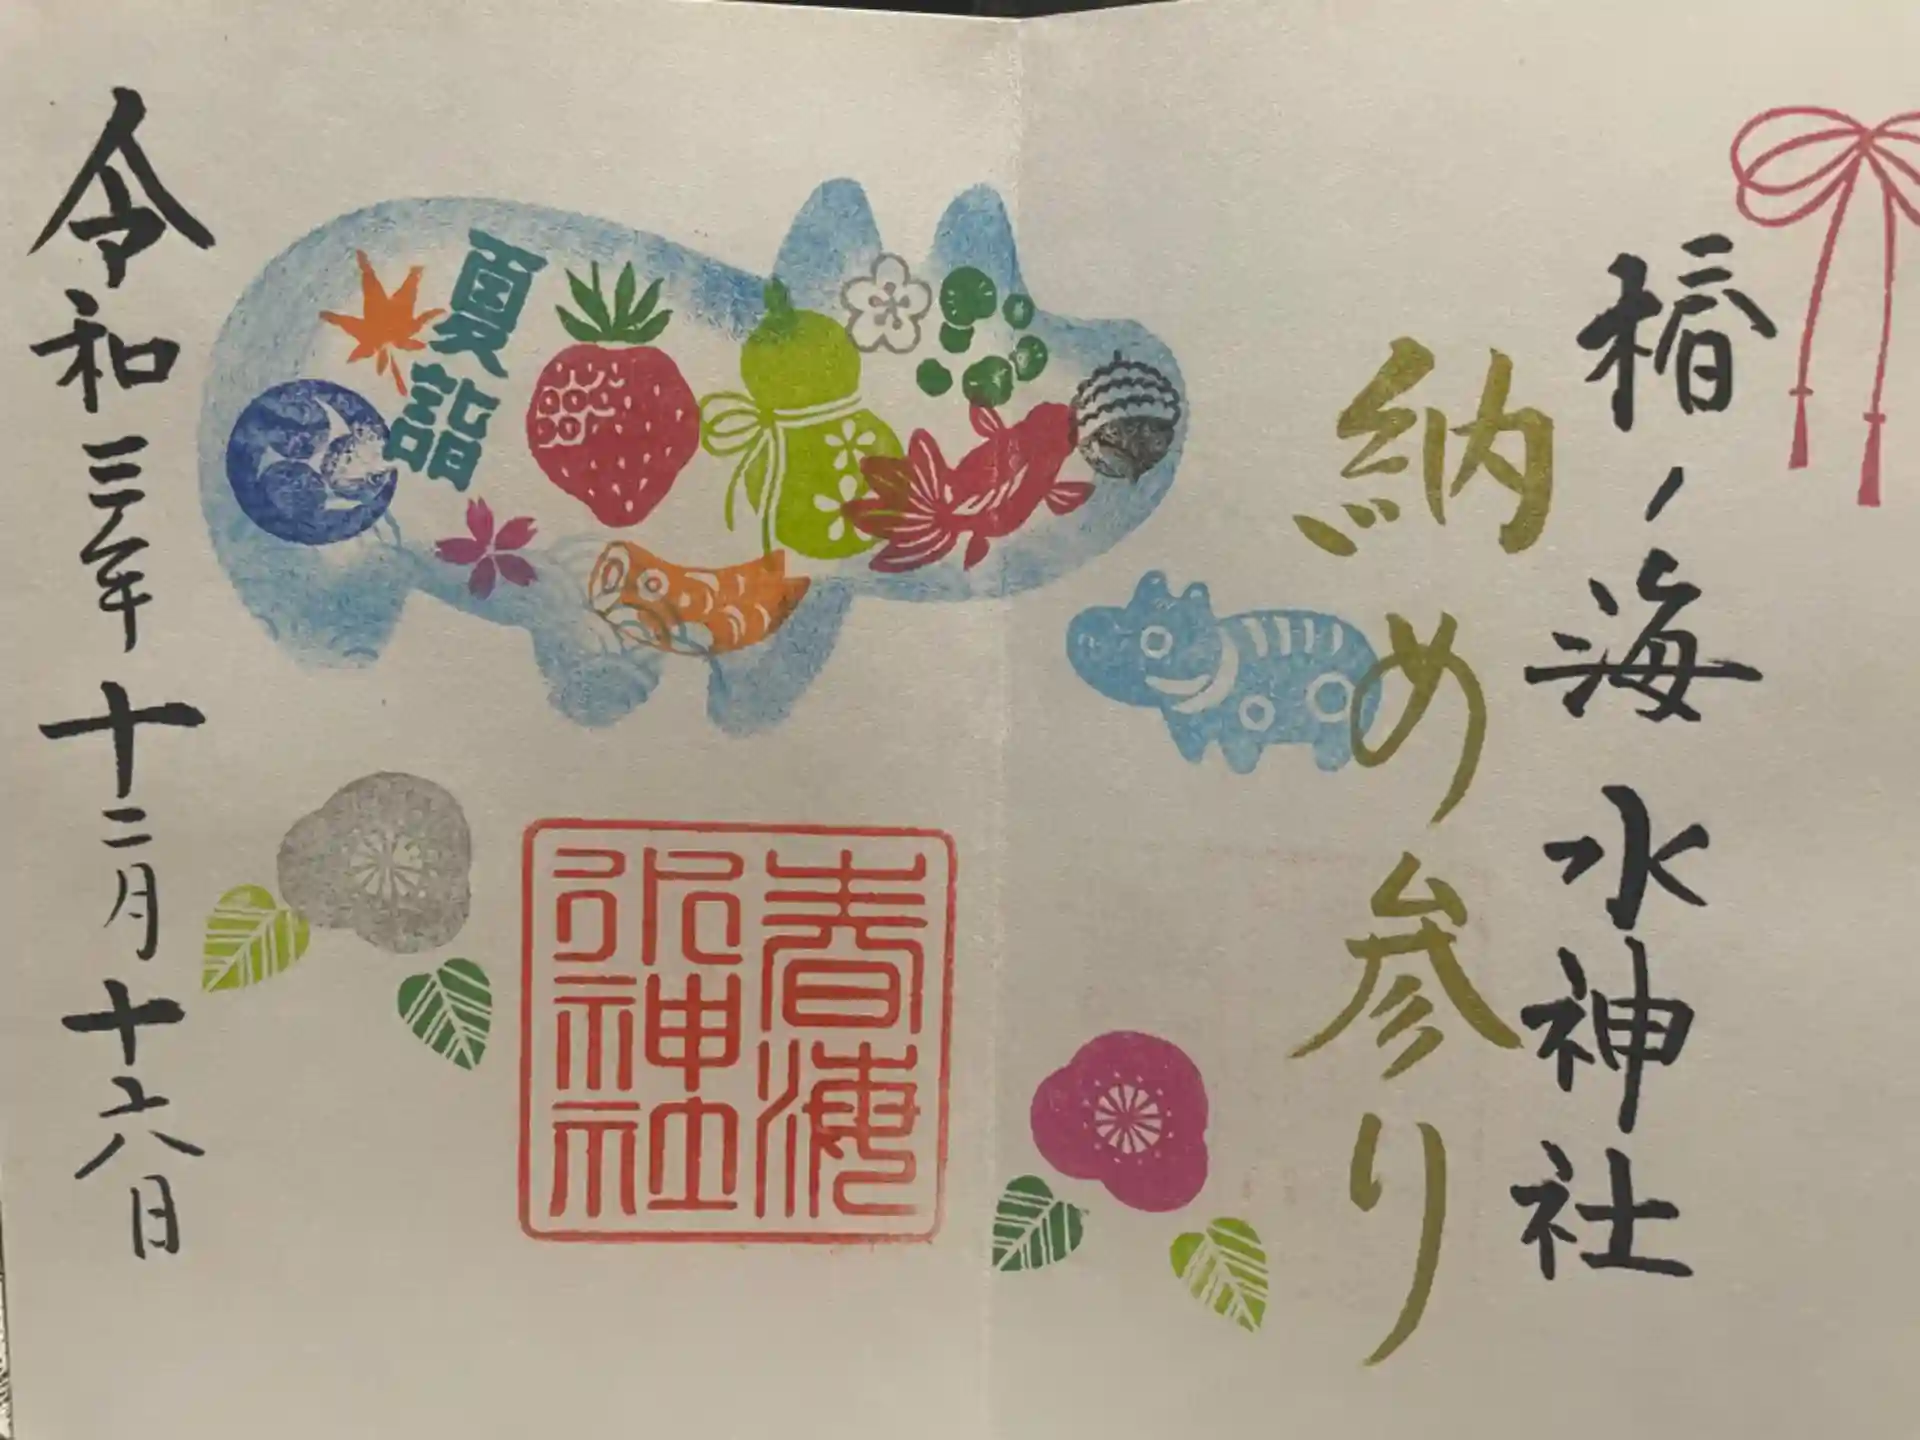 椿ノ海水神社
納め参り
夏詣
春海
水神社
令和三年十二月十六日